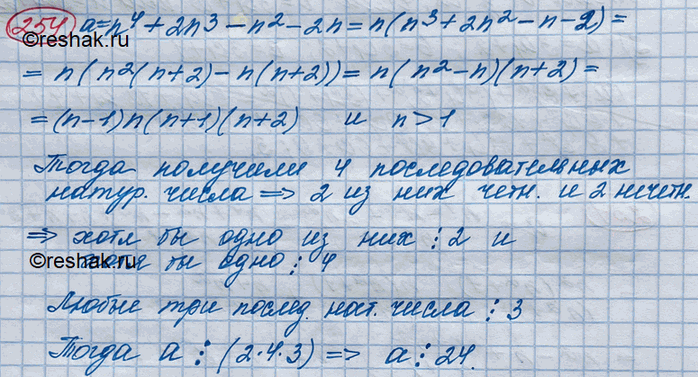 254 a=n⁴+2n³-n²-2n=n(n³+2n²-n-2)=
©reshak.ru
=n(n²(n+2)-n(n+2))=n(n²-n)(n+2)=
=(n-1)n(n+1)(n+2) и n>1
Тогда получили 4 последовательных
натур. числа ⇒ 2 из них четн. и 2 нечетн.
⇒ хотя бы одно из них ⋮ 2 и
©reshak.ru
хотя бы одно ⋮ 4
Любые три послед. нат. числа ⋮ 3
Тогда a ⋮ (2·4·3) ⇒ a ⋮ 24.